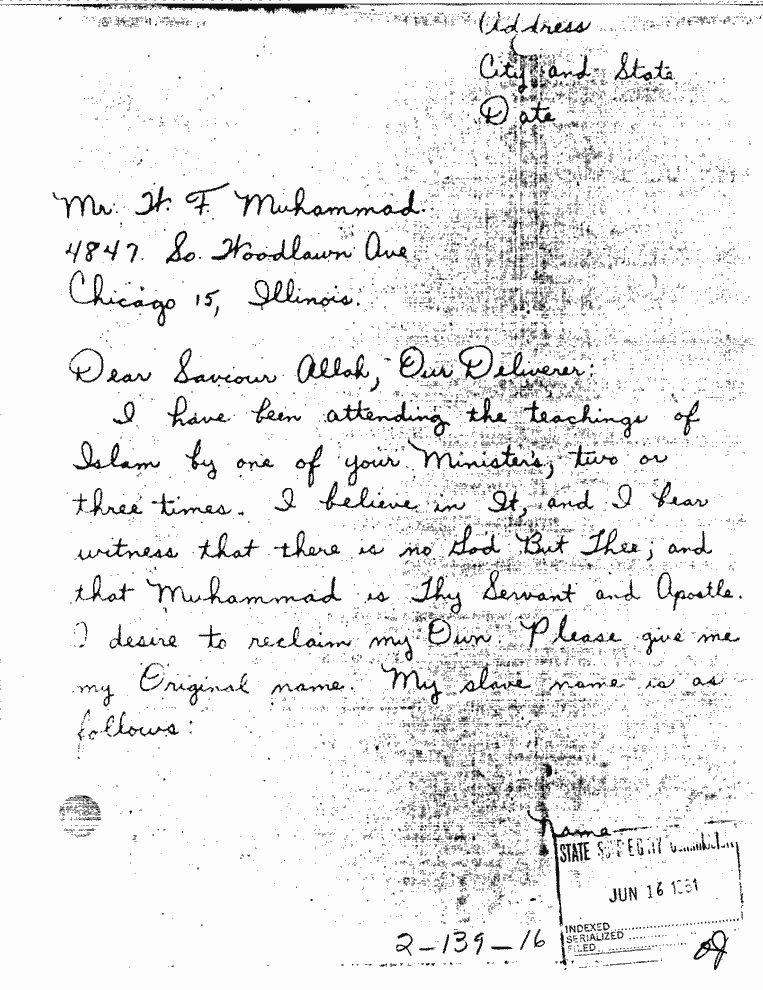 Address
City and State
Date
Mr. W. F. Muhammad.
4847. So. Woodlawn Ave
Chicago 15, Illinois.
Dear Saviour Allah, Our Deliverer:
I have been attending the teachings of
Islam by one of your Ministers, two or
three times. I believe in It, and I bear
witness that there is no God But Thee; and
that Muhammad is Thy Servant and Apostle.
I desire to reclaim my Own. Please give me
my Original name. My slave name is as
follows:
Name
STATE
JUN 16
INDEXED
SERIALIZED
FILED
2-139-16